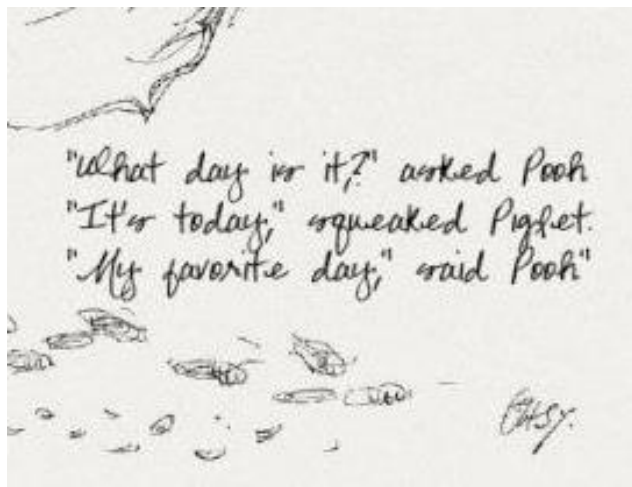 "What day is it?," asked Pooh
"It's today," squeaked Piglet.
"My favorite day," said Pooh"